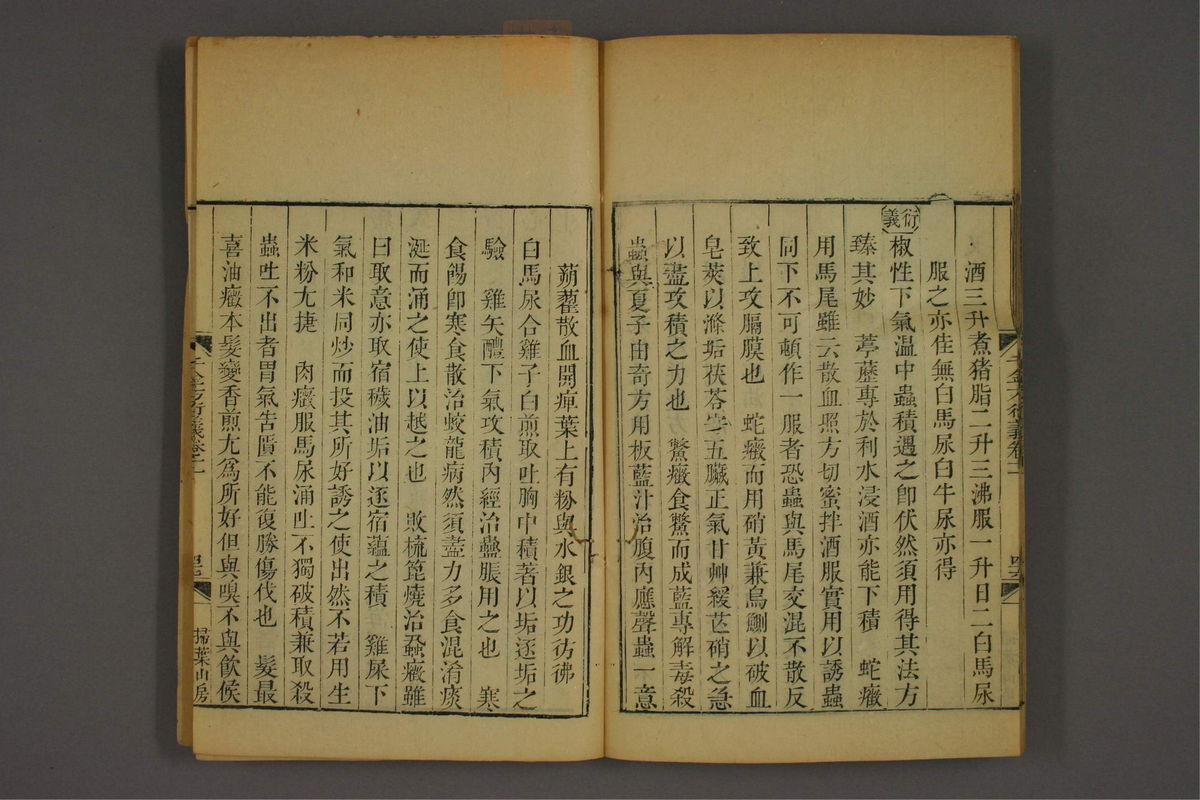 酒三升煮猪脂二升三沸服一升日二白馬尿
服之亦佳無白馬尿白牛尿亦得
衍義
椒性下氣温中蟲積遇之卽伏然須用得其法方
臻其妙　葶藶專於利水浸酒亦能下積　蛇癥
用馬尾雖云散血照方切蜜拌酒服實用以誘蟲
同下不可頓作一服者恐蟲與馬尾交混不散反
致上攻膈膜也　蛇癥而用硝黃兼烏鰂以破血
皂莢以滌垢茯苓守五臟正氣甘艸緩芒硝之急
以盡攻積之力也　鱉癥食鱉而成藍專解毒殺
蟲與夏子由奇方用板藍汁治腹內應聲蟲一意
蒴藋散血開痺葉上有粉與水銀之功彷彿
白馬尿合雞子白煎取吐胸中積著以垢逐垢之
驗　雞矢醴下氣攻積內經治蠱脹用之也　寒
食餳卽寒食散治蛟龍病然須盡力多食混淆痰
涎而涌之使上以越之也　敗梳篦燒治蝨癥雖
曰取意亦取宿穢油垢以逐宿蘊之積　雞屎下
氣和米同炒而投其所好誘之使出然不若用生
米粉尤捷　肉癥服馬尿涌吐不獨破積兼取殺
蟲吐不出者胃氣告匱不能復勝傷伐也　髮最
喜油癥本髮變香煎尤爲所好但與嗅不與飲候
千金方衍義卷十一
掃葉山房